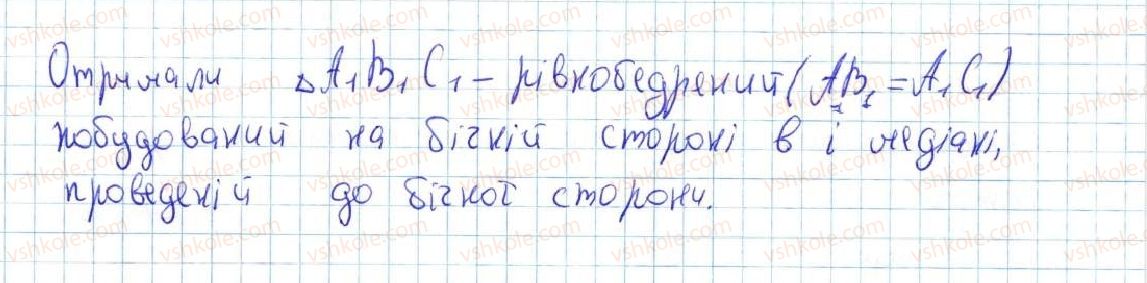 Отримали △A₁B₁C₁ – рівнобедрений (A₁B₁ = A₁C₁)
побудований на бічній стороні в і медіані,
проведеній до бічної сторони.